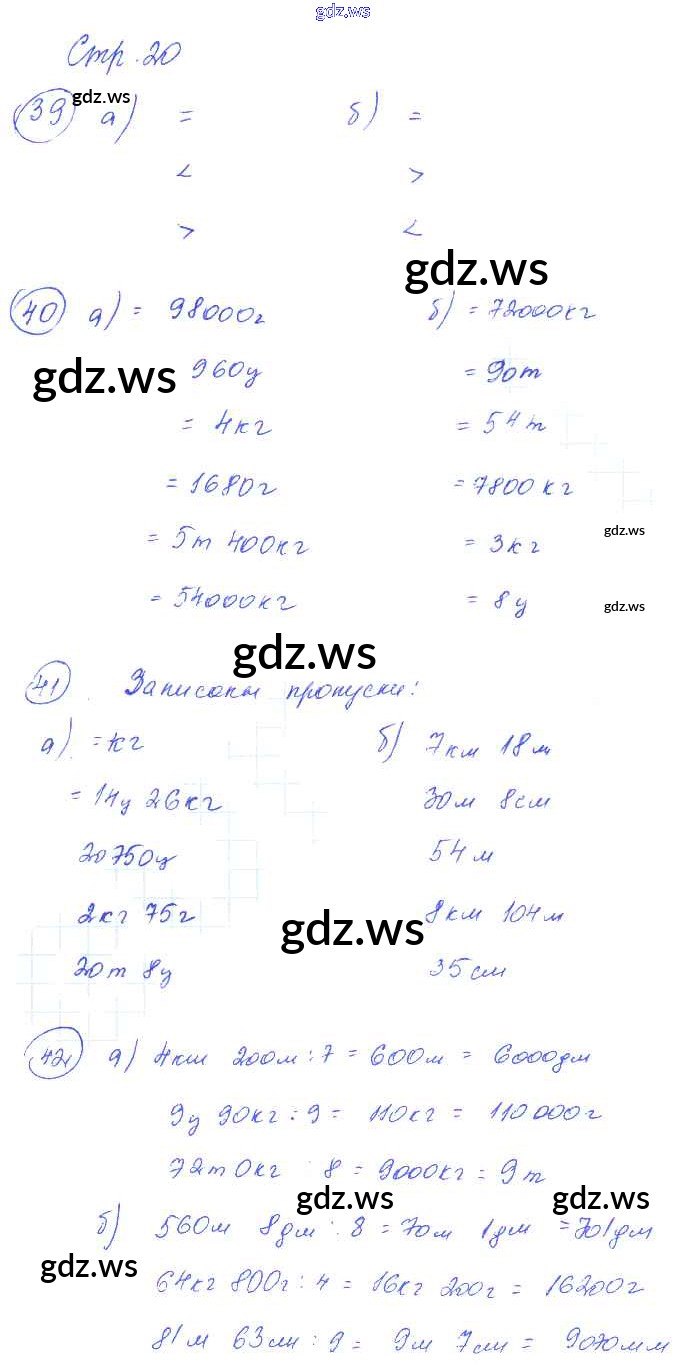 gdz.ws
Стр. 20
39 а) = б) =
gdz.ws
< >
> <
gdz.ws
40 а) = 98000г б) = 72000кг
gdz.ws
960ц = 90т
= 4кг = 54т
= 1680г = 7800кг
gdz.ws
= 5т 400кг = 3кг
= 54000кг = 8ц
gdz.ws
gdz.ws
41 Записаны пропуски:
а) = кг б) 7км 18м
= 14ц 26кг 30м 8см
20750ц 54м
2кг 75г 8км 104м
gdz.ws
20т 8ц 35см
42 а) 4км 200м : 7 = 600м = 6000дм
9ц 90кг : 9 = 110кг = 110000г
72т 0кг : 8 = 9000кг = 9т
gdz.ws gdz.ws
б) 560м 8дм : 8 = 70м 1дм = 701дм
gdz.ws
64кг 800г : 4 = 16кг 200г = 16200г
81м 63см : 9 = 9м 7см = 9070мм